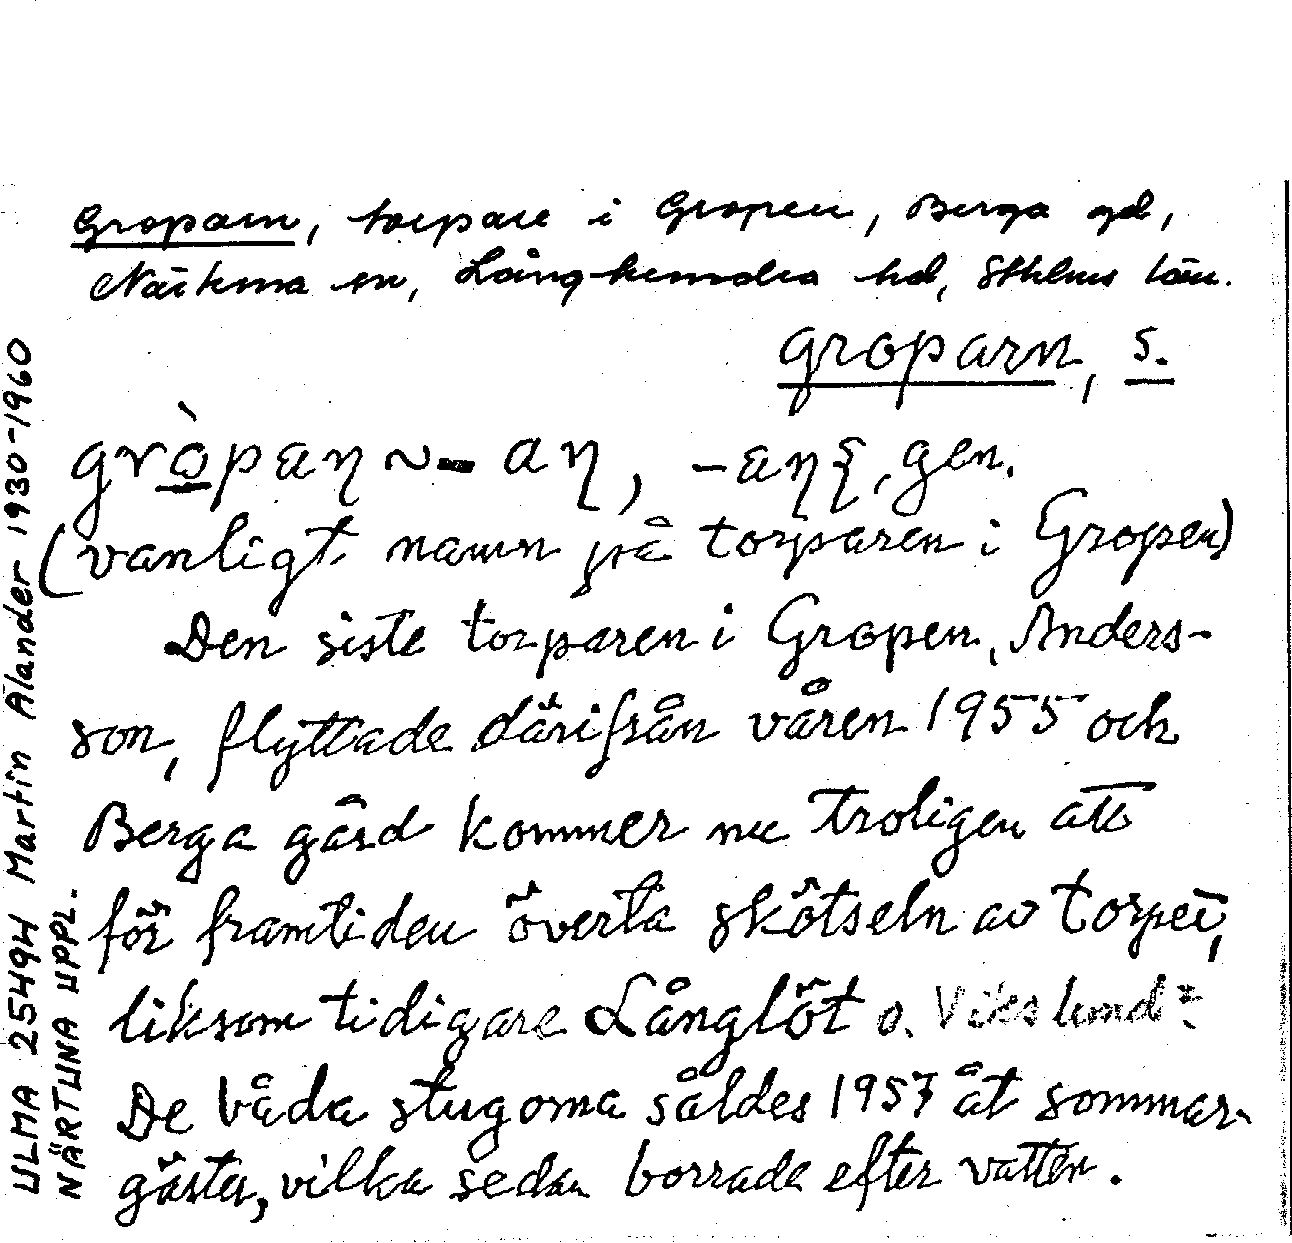 Groparn, torpare i Gropen, Berga gd,
Närtuna sn, Långhundra hd, Sthlms län.
groparn, s.
grò̲paɳ ~ - aɳ, -aɳs, gen.
(vanligt namn på torparen i Gropen)
Den siste torparen i Gropen, Anders-
son, flyttade därifrån våren 1955 och
Berga gård kommer nu troligen att
för framtiden överta skötseln av torpet,
liksom tidigare Långlöt o. Vikslund.
De båda stugorna såldes 1957 åt sommar-
gäster, vilka sedan borrade efter vatten.
ULMA 25494 Martin Ålander 1930-1960
NÄRTUNA UPPL.